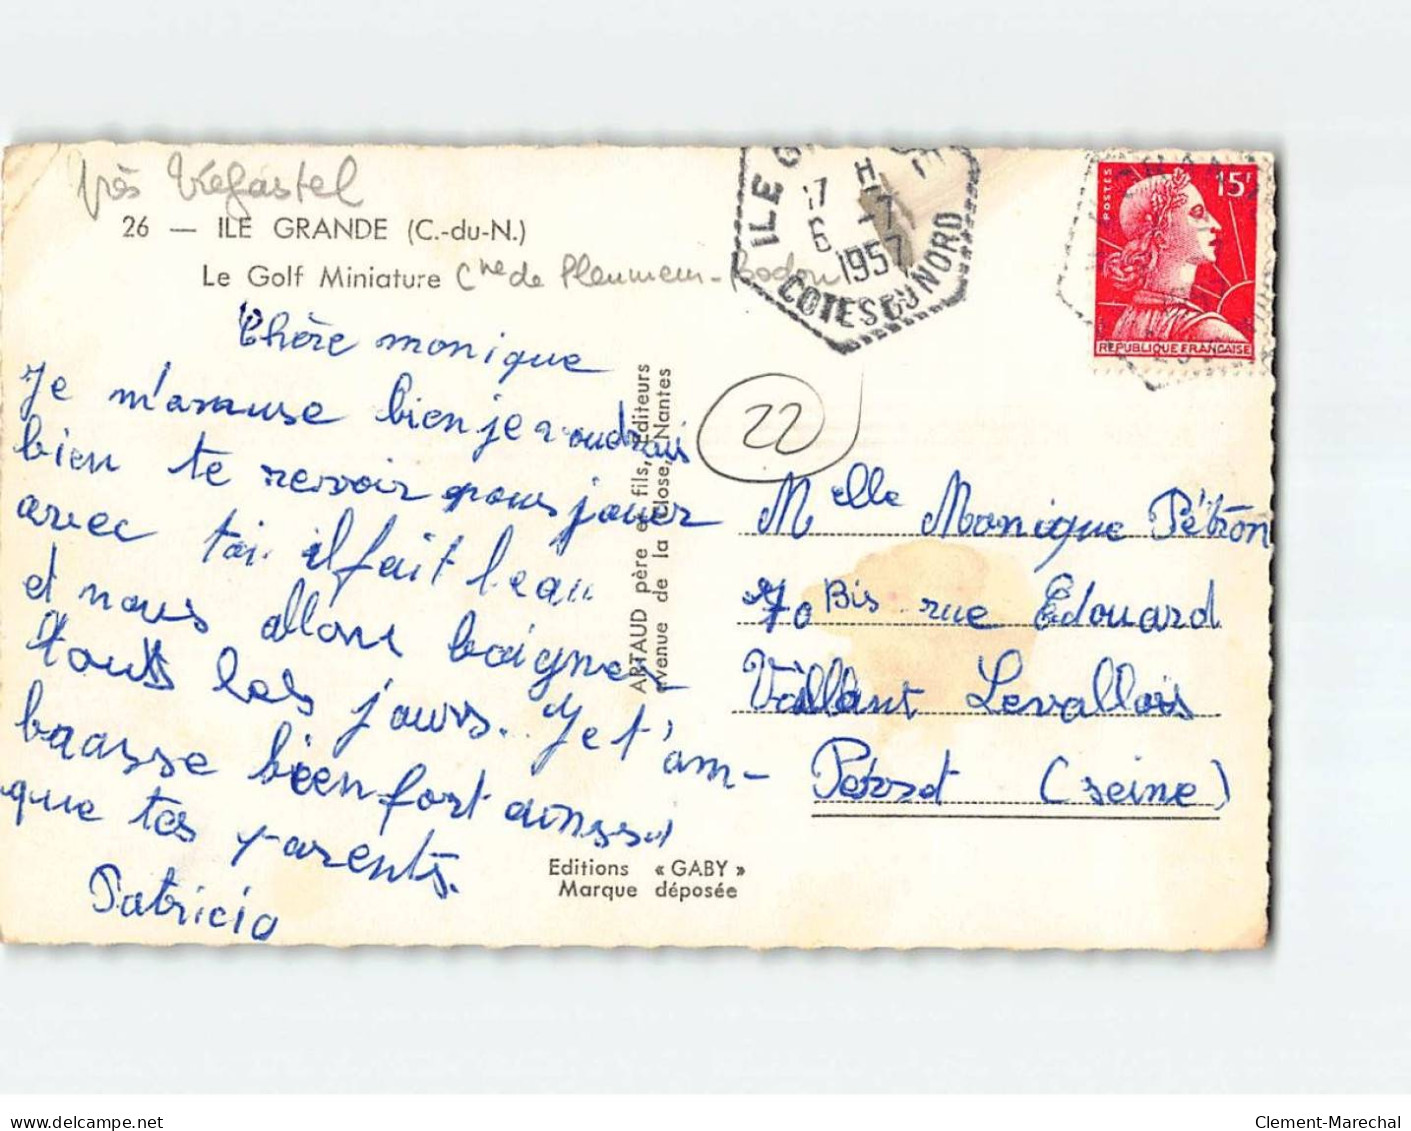 près Trégastel
26 — ILE GRANDE (C.-du-N.)
Le Golf Miniature Cne de Pleumeur-Bodou
Chère monique
Je m'amuse bien je voudrais
bien te revoir pour jouer
avec toi il fait beau
et nous allons baigner
tous les jours. Je t'am-
brasse bien fort aussi
que tes parents.
Patricia
ARTAUD père et fils, Editeurs
avenue de la Close, Nantes
Editions « GABY »
Marque déposée
ILE G
17 H
6 -7
1957
COTES DU NORD
POSTES
15F
REPUBLIQUE FRANCAISE
22
Melle Monique Pétron
70 Bis rue Edouard
Vaillant Levallois
Perret (seine)
Clement-Marechal